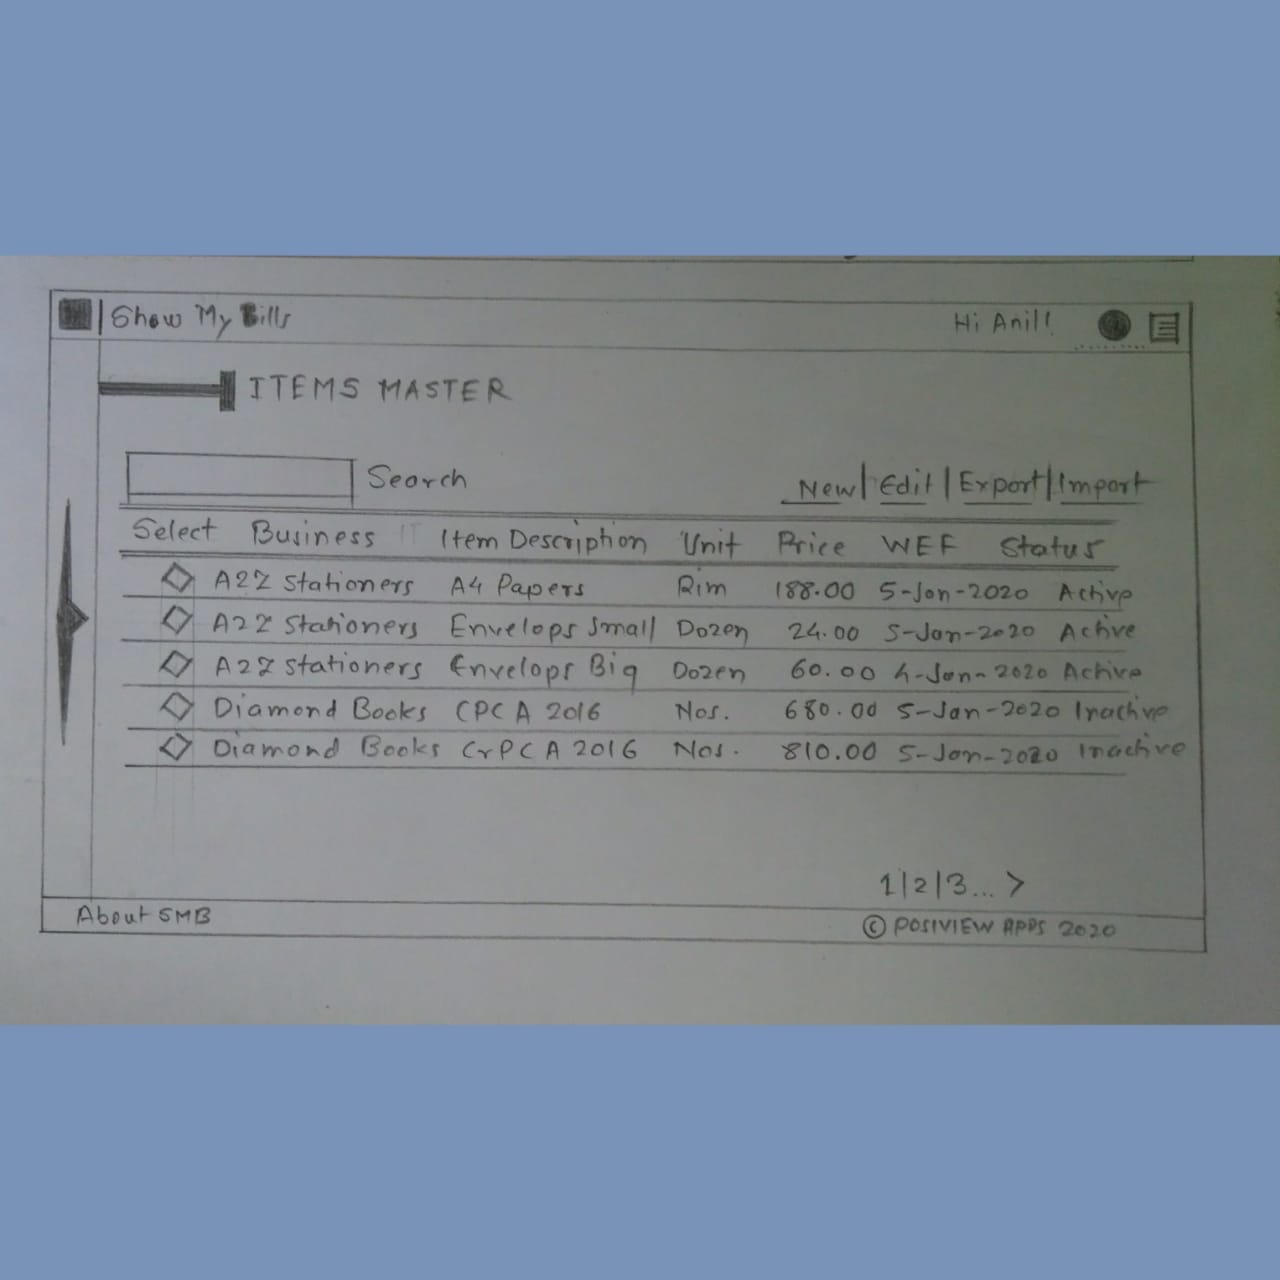 Show My Bills Hi Anil!
ITEMS MASTER
Search New | Edit | Export | Import
Select Business Item Description Unit Price WEF Status
A2Z Stationers A4 Papers Rim 188.00 5-Jan-2020 Active
A2Z Stationers Envelops Small Dozen 24.00 5-Jan-2020 Active
A2Z Stationers Envelops Big Dozen 60.00 4-Jan-2020 Active
Diamond Books CPC A 2016 Nos. 680.00 5-Jan-2020 Inactive
Diamond Books CrPC A 2016 Nos. 810.00 5-Jan-2020 Inactive
1|2|3... >
About SMB © POSIVIEW APPS 2020